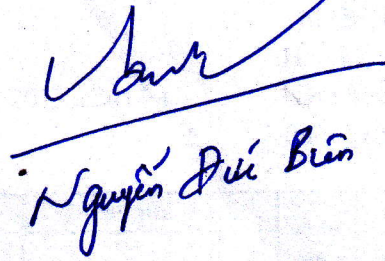 Nguyễn Đức Biên